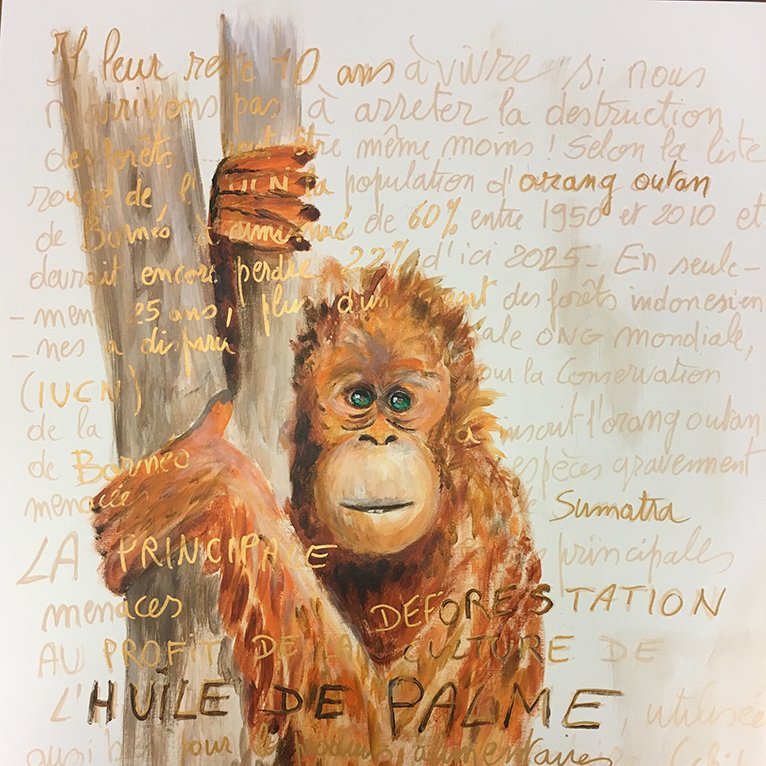 Il leur reste 10 ans à vivre si nous
n'arrivons pas à arreter la destruction
des forêts peut être même moins ! Selon la liste
rouge de l'IUCN la population d'orang outan
de Bornéo a diminué de 60% entre 1950 et 2010 et
devrait encore perdre 22% d'ici 2025 - En seule-
- ment 25 ans, plus d'un quart des forêts indonesien
- nes a disparu ONG mondiale,
(IUCN) pour la Conservation
de la a inscrit l'orang outan
de Borneo espèces gravement
menacées Sumatra
LA PRINCIPALE principales
menaces DEFORESTATION
AU PROFIT DE LA CULTURE DE
L'HUILE DE PALME, utilisée
aussi bien pour les produits alimentaires